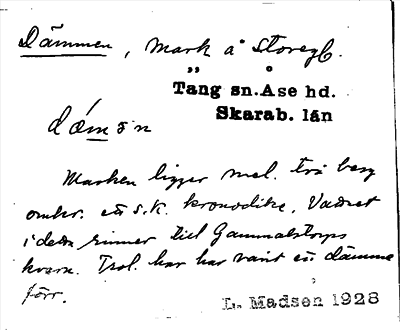 Dämmen, mark å Storegb.
Tång sn. Åse hd.
Skarab. län
dǽmən
Marken ligger mel. två berg
omkr. en s.k. kronodike. Vattnet
i detta rinner till Gammalstorps
kvarn. Trol. har här varit en dämme
förr.
L. Madsen 1928